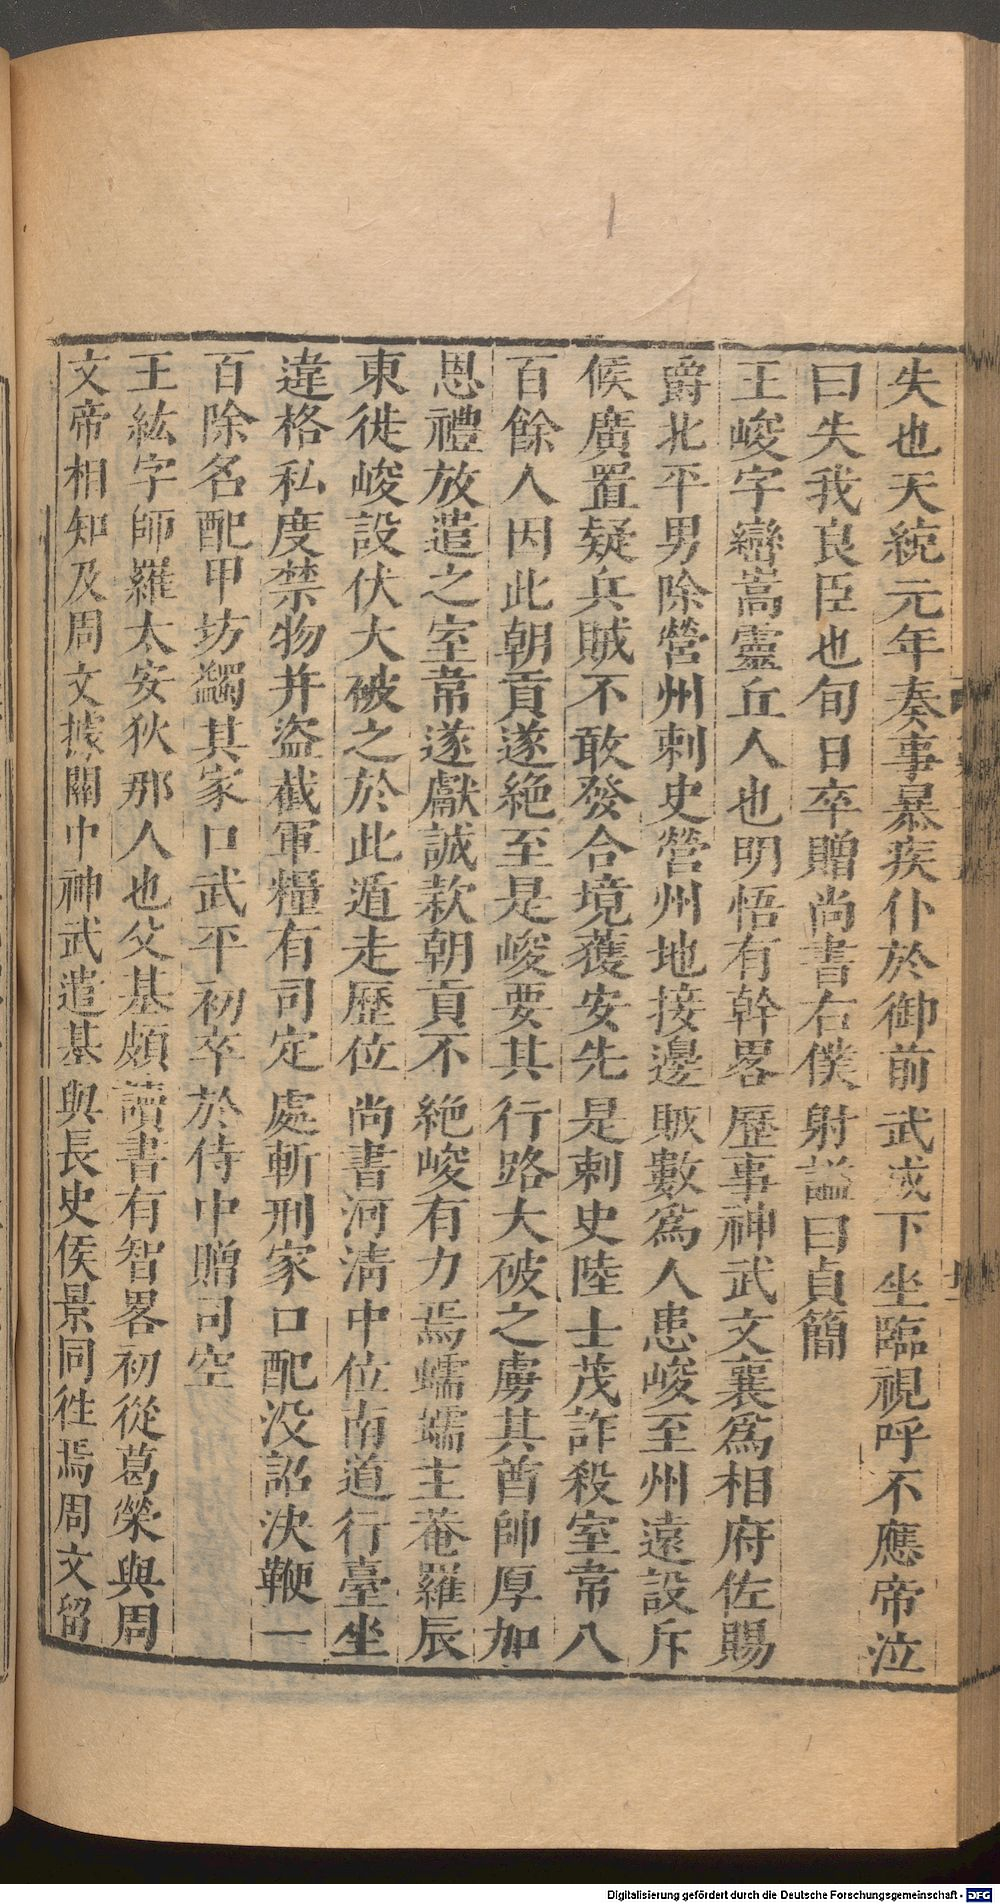 失也天統元年奏事暴疾仆於御前武成下坐臨視呼不應帝泣
曰失我良臣也旬日卒贈尚書右僕射謚曰貞簡
王峻字巒嵩靈丘人也明悟有幹畧歷事神武文襄為相府佐賜
爵北平男除營州刺史營州地接邊賊數為人患峻至州遠設斥
候廣置疑兵賊不敢發合境獲安先是刺史陸士茂詐殺室韋八
百餘人因此朝貢遂絕至是峻要其行路大破之虜其酋帥厚加
恩禮放遣之室韋遂獻誠款朝貢不絕峻有力焉蠕蠕主菴羅辰
東徙峻設伏大破之於此遁走歷位尚書河清中位南道行臺坐
違格私度禁物并盜截軍糧有司定處斬刑家口配沒詔決鞭一
百除名配甲坊蠲其家口武平初卒於侍中贈司空
王紘字師羅太安狄那人也父基頗讀書有智畧初從葛榮與周
文帝相知及周文據關中神武遣基與長史侯景同往焉周文留
Digitalisierung gefördert durch die Deutsche Forschungsgemeinschaft - DFG